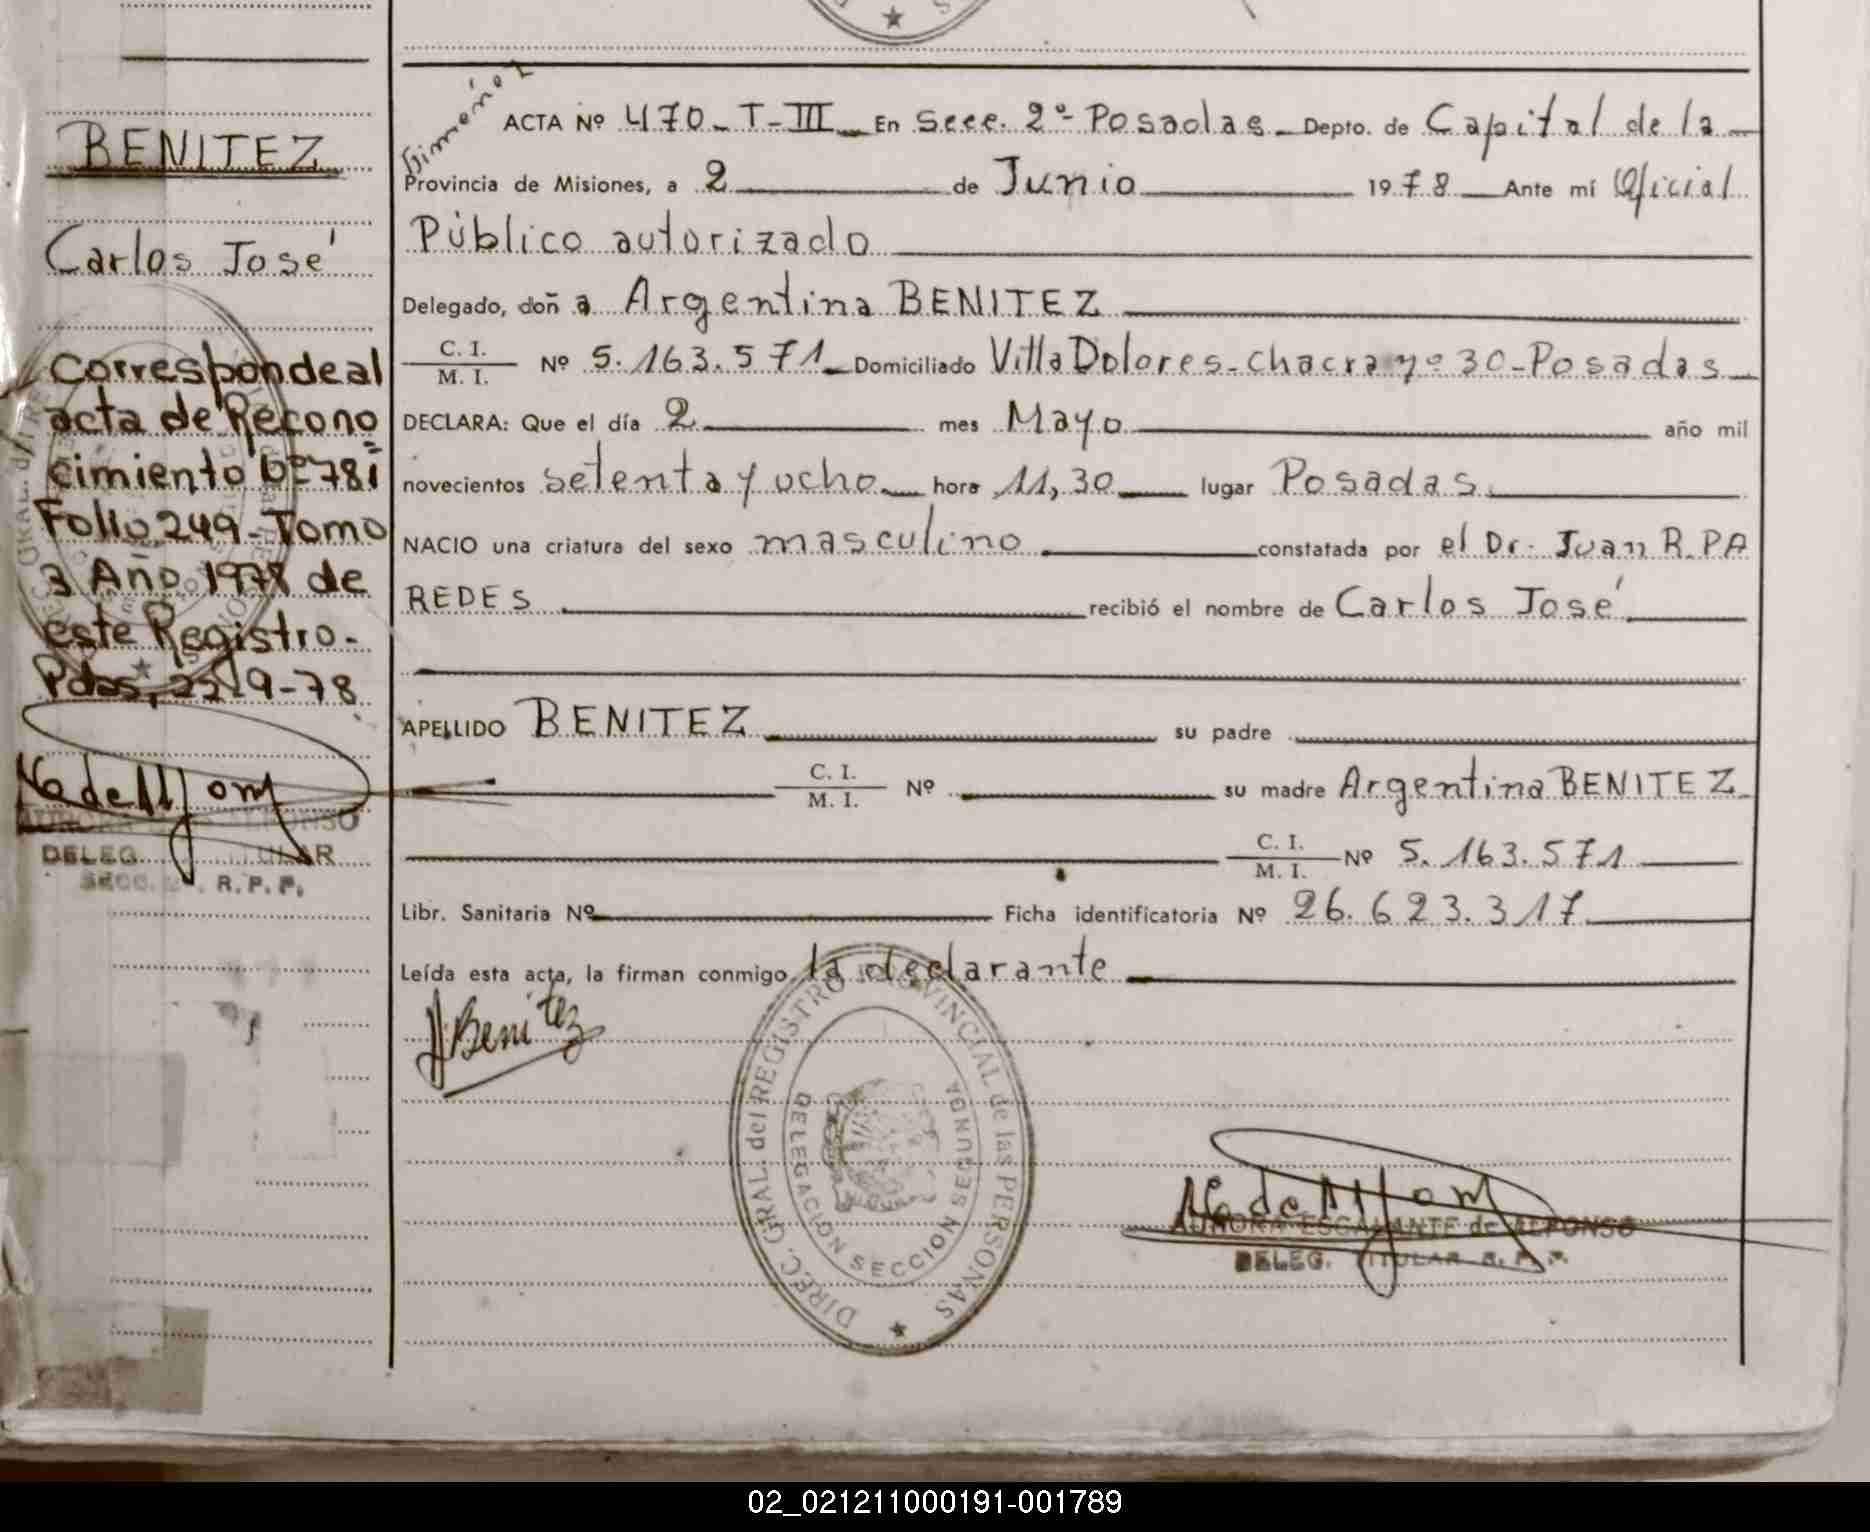 BENITEZ
Carlos José
Corresponde al
acta de Recono
cimiento Nº 781
Folio 249 - Tomo
3 Año 1978 de
este Registro.
Pdas, 22-9-78
DELEG. TITULAR
SECC. R. P. P.
Gimeñez
ACTA Nº 470 - T - III En Secc. 2º Posadas Depto. de Capital de la
Provincia de Misiones, a 2 de Junio 1978 Ante mí Oficial
Público autorizado
Delegado, doña Argentina BENITEZ
C. I.
M. I. Nº 5.163.571 Domiciliado Villa Dolores - Chacra nº 30 - Posadas
DECLARA: Que el día 2 mes Mayo año mil
novecientos setenta y ocho hora 11,30 lugar Posadas
NACIO una criatura del sexo masculino constatada por el Dr. Juan R. PA
REDES recibió el nombre de Carlos José
APELLIDO BENITEZ su padre
C. I.
M. I. Nº su madre Argentina BENITEZ
C. I.
M. I. Nº 5.163.571
Libr. Sanitaria Nº Ficha identificatoria Nº 26.623.317
Leída esta acta, la firman conmigo la declarante
A Benitez
DIREC. GRAL. del REGISTRO PROVINCIAL de las PERSONAS
DELEGACION SECCION SEGUNDA
AURORA ESCALANTE de ALFONSO
DELEG. TITULAR R. P. P.
02_021211000191-001789